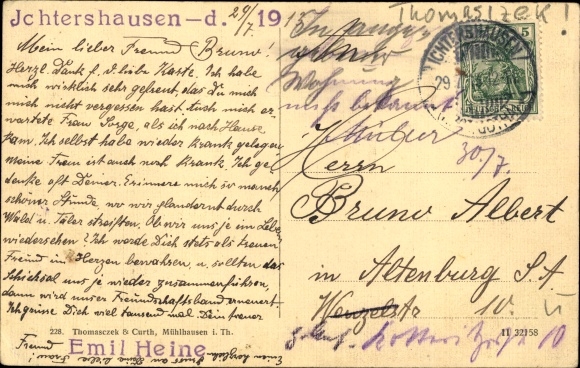 Jchtershausen-d. 29/7. 191
Mein lieber Freund Bruno!
Herzl. Dank f. d. liebe Karte. Ich habe
mich wirklich sehr gefreut, das Du mich
nicht vergessen hast, auch mich er-
wartete Frau Sorge, als ich nach Hause
kam. Ich selbst habe wieder krank gelegen
meine Frau ist auch noch krank. Ich ge-
denke oft Deiner. Erinnere mich so manch
schöner Stunde, wo wir plaudernd durch
Wald u. Täler streiften. Ob wir uns je im Leben
wiedersehen? Ich werde Dich stets als treuen
Freund im Herzen bewahren, u. sollten das
Schicksal uns je wieder zusammenführen,
dann wird unser Freundschaftsband erneuert.
Ich grüsse Dich viel tausend mal Dein treuer
Freund
Emil Heine
228. Thomasczek & Curth, Mühlhausen i. Th.
Thomasczek!
Wohnung
ICHTERSHAUSEN
29
5
30/7.
Herrn
Bruno Albert
in Altenburg S.A.
Wenzelstr 10.
11 32158